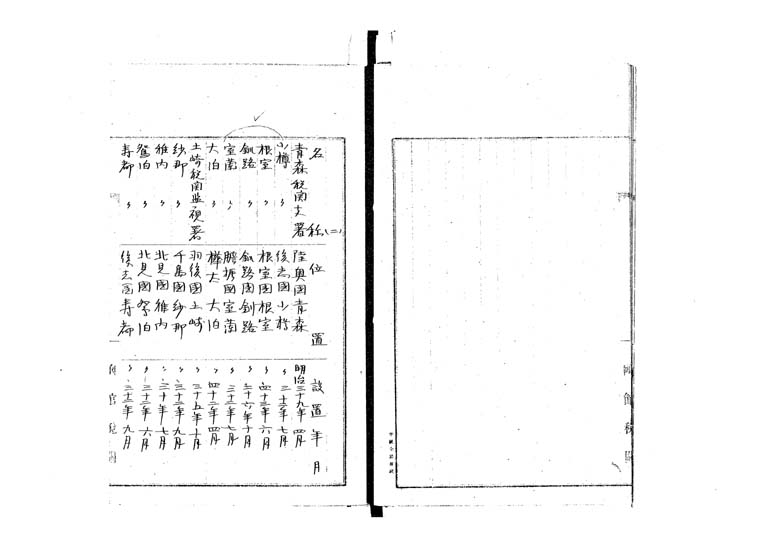 名 称(二) 位 置 設置年月
青森税関支署 陸奥國青森 明治三十九年四月
小樽 〃 後志國小樽 〃 三十二年七月
根室 〃 根室國根室 〃 四十三年六月
釧路 〃 釧路國釧路 〃 三十六年十月
室蘭 〃 膽振國室蘭 〃 三十二年七月
大泊 〃 樺太 大泊 〃 四十二年四月
土崎税関監視署 羽後國土崎 〃 三十五年十月
紗那 〃 千島國紗那 〃 三十二年九月
稚内 〃 北見國稚内 〃 三十年七月
鴛泊 〃 北見國鴛泊 〃 三十二年六月
寿都 〃 後志國寿都 〃 三十二年九月
函館税関